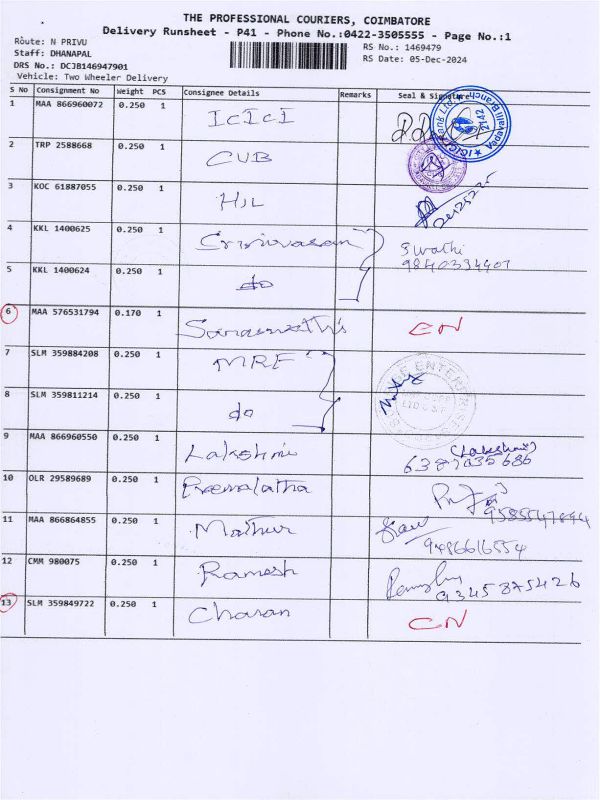 THE PROFESSIONAL COURIERS, COIMBATORE
Delivery Runsheet - P41 - Phone No.:0422-3505555 - Page No.:1
Route: N PRIVU
RS No.: 1469479
Staff: DHANAPAL
RS Date: 05-Dec-2024
DRS No.: DCJB146947901
Vehicle: Two Wheeler Delivery
S No Consignment No Weight PCS Consignee Details Remarks Seal & Signature
1 MAA 866960072 0.250 1 ICICI
2 TRP 2588668 0.250 1 CUB
3 KOC 61887055 0.250 1 HIL
4 KKL 1400625 0.250 1 Srinivasan Swathi
9840334407
5 KKL 1400624 0.250 1 do
6 MAA 576531794 0.170 1 Saraswathi's CN
7 SLM 359884208 0.250 1 MRF
8 SLM 359811214 0.250 1 do
9 MAA 866960550 0.250 1 Lakshmi (Lakshmi)
6387035686
10 OLR 29589689 0.250 1 Premalatha
9585547894
11 MAA 866864855 0.250 1 Mathur
9486616554
12 CMM 980075 0.250 1 Ramesh
9345875426
13 SLM 359849722 0.250 1 Charan CN